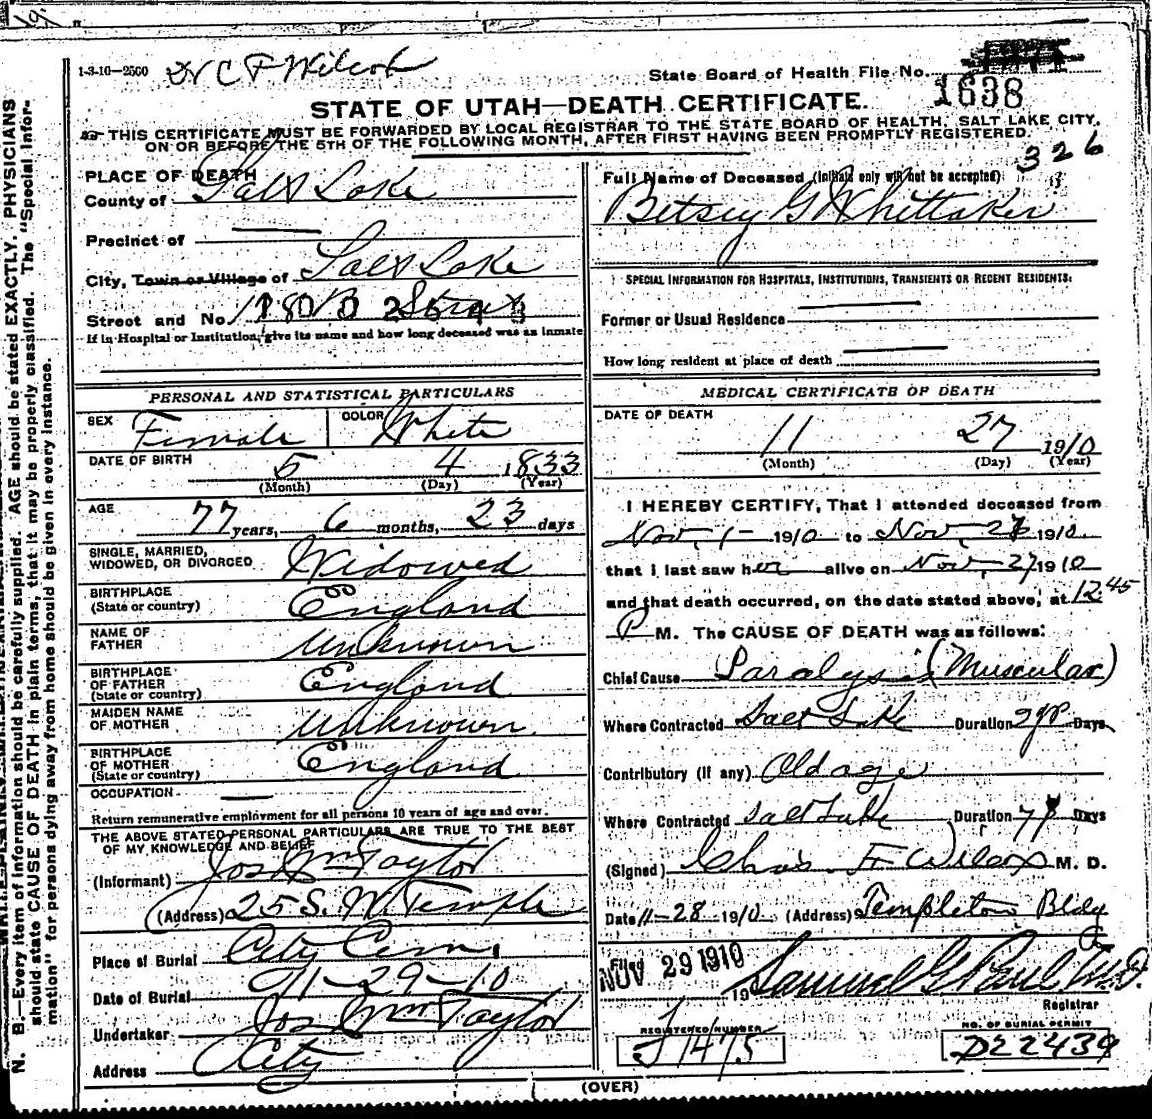 1-3-10—2500 Dr C F Wilcox
State Board of Health File No. 1638
STATE OF UTAH—DEATH CERTIFICATE.
THIS CERTIFICATE MUST BE FORWARDED BY LOCAL REGISTRAR TO THE STATE BOARD OF HEALTH, SALT LAKE CITY,
ON OR BEFORE THE 5TH OF THE FOLLOWING MONTH, AFTER FIRST HAVING BEEN PROMPTLY REGISTERED.
326
PLACE OF DEATH
County of Salt Lake
Precinct of
City, Town or Village of Salt Lake
Street and No.
If in Hospital or Institution, give its name and how long deceased was an inmate
Full Name of Deceased (Initials only will not be accepted)
Betsey G Whittaker
SPECIAL INFORMATION FOR HOSPITALS, INSTITUTIONS, TRANSIENTS OR RECENT RESIDENTS:
Former or Usual Residence
How long resident at place of death
PERSONAL AND STATISTICAL PARTICULARS
SEX Female COLOR White
DATE OF BIRTH 5 4 1833
(Month) (Day) (Year)
AGE 77 years, 6 months, 23 days
SINGLE, MARRIED,
WIDOWED, OR DIVORCED Widowed
BIRTHPLACE
(State or country) England
NAME OF
FATHER Unknown
BIRTHPLACE
OF FATHER
(State or country) England
MAIDEN NAME
OF MOTHER Unknown
BIRTHPLACE
OF MOTHER
(State or country) England
OCCUPATION
Return remunerative employment for all persons 10 years of age and over.
THE ABOVE STATED PERSONAL PARTICULARS ARE TRUE TO THE BEST
OF MY KNOWLEDGE AND BELIEF
(Informant) Jos Wm Taylor
(Address) 25 S. W. Temple
Place of Burial City Cem,
Date of Burial 11-29-10
Undertaker Jos Wm Taylor
Address City
MEDICAL CERTIFICATE OF DEATH
DATE OF DEATH
11 27 1910
(Month) (Day) (Year)
I HEREBY CERTIFY, That I attended deceased from
Nov, 1- 1910 to Nov, 27 1910
that I last saw her alive on Nov, 27 1910
and that death occurred, on the date stated above, at 12.45
P M. The CAUSE OF DEATH was as follows:
Chief Cause Paralysis (Muscular)
Where Contracted Salt Lake Duration Days
Contributory (If any) Old age
Where Contracted Salt Lake Duration Days
(Signed) Chas. F. Wilcox M. D.
Date 11-28-1910 (Address) Templeton Bldg
NOV 29 1910
19 Samuel G Paul M.D.
Registrar
REGISTERED NUMBER
J 1475
NO. OF BURIAL PERMIT
D22439
(OVER)
N. B.—Every item of information should be carefully supplied. AGE should be stated EXACTLY. PHYSICIANS
should state CAUSE OF DEATH in plain terms, that it may be properly classified. The "Special Infor-
mation" for persons dying away from home should be given in every instance.